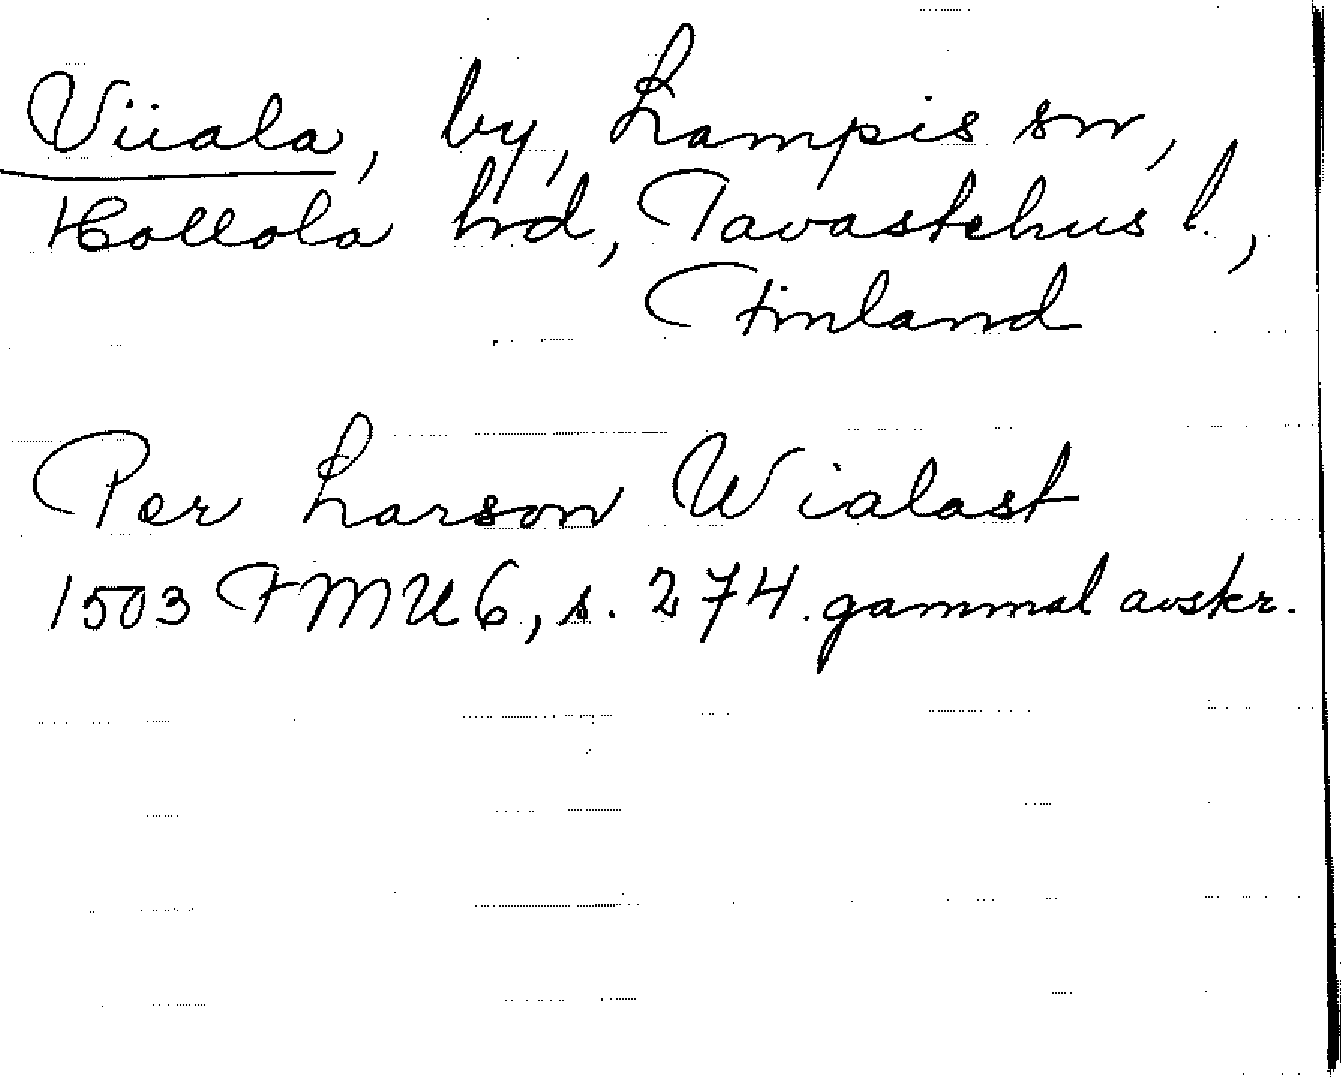 Viiala, by, Lampis sn,
Hollola hd, Tavastehus l.,
Finland
Per Larson Wialast
1503 FMU 6, s. 274. gammal avskr.